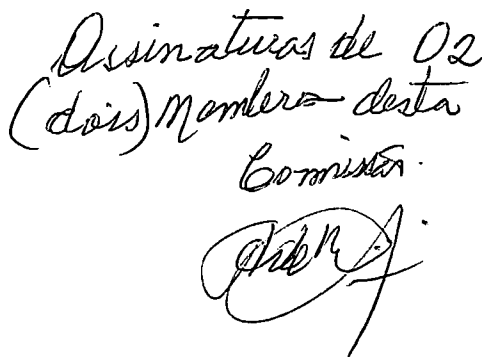 Assinaturas de 02
(dois) Membros desta
Comissão.